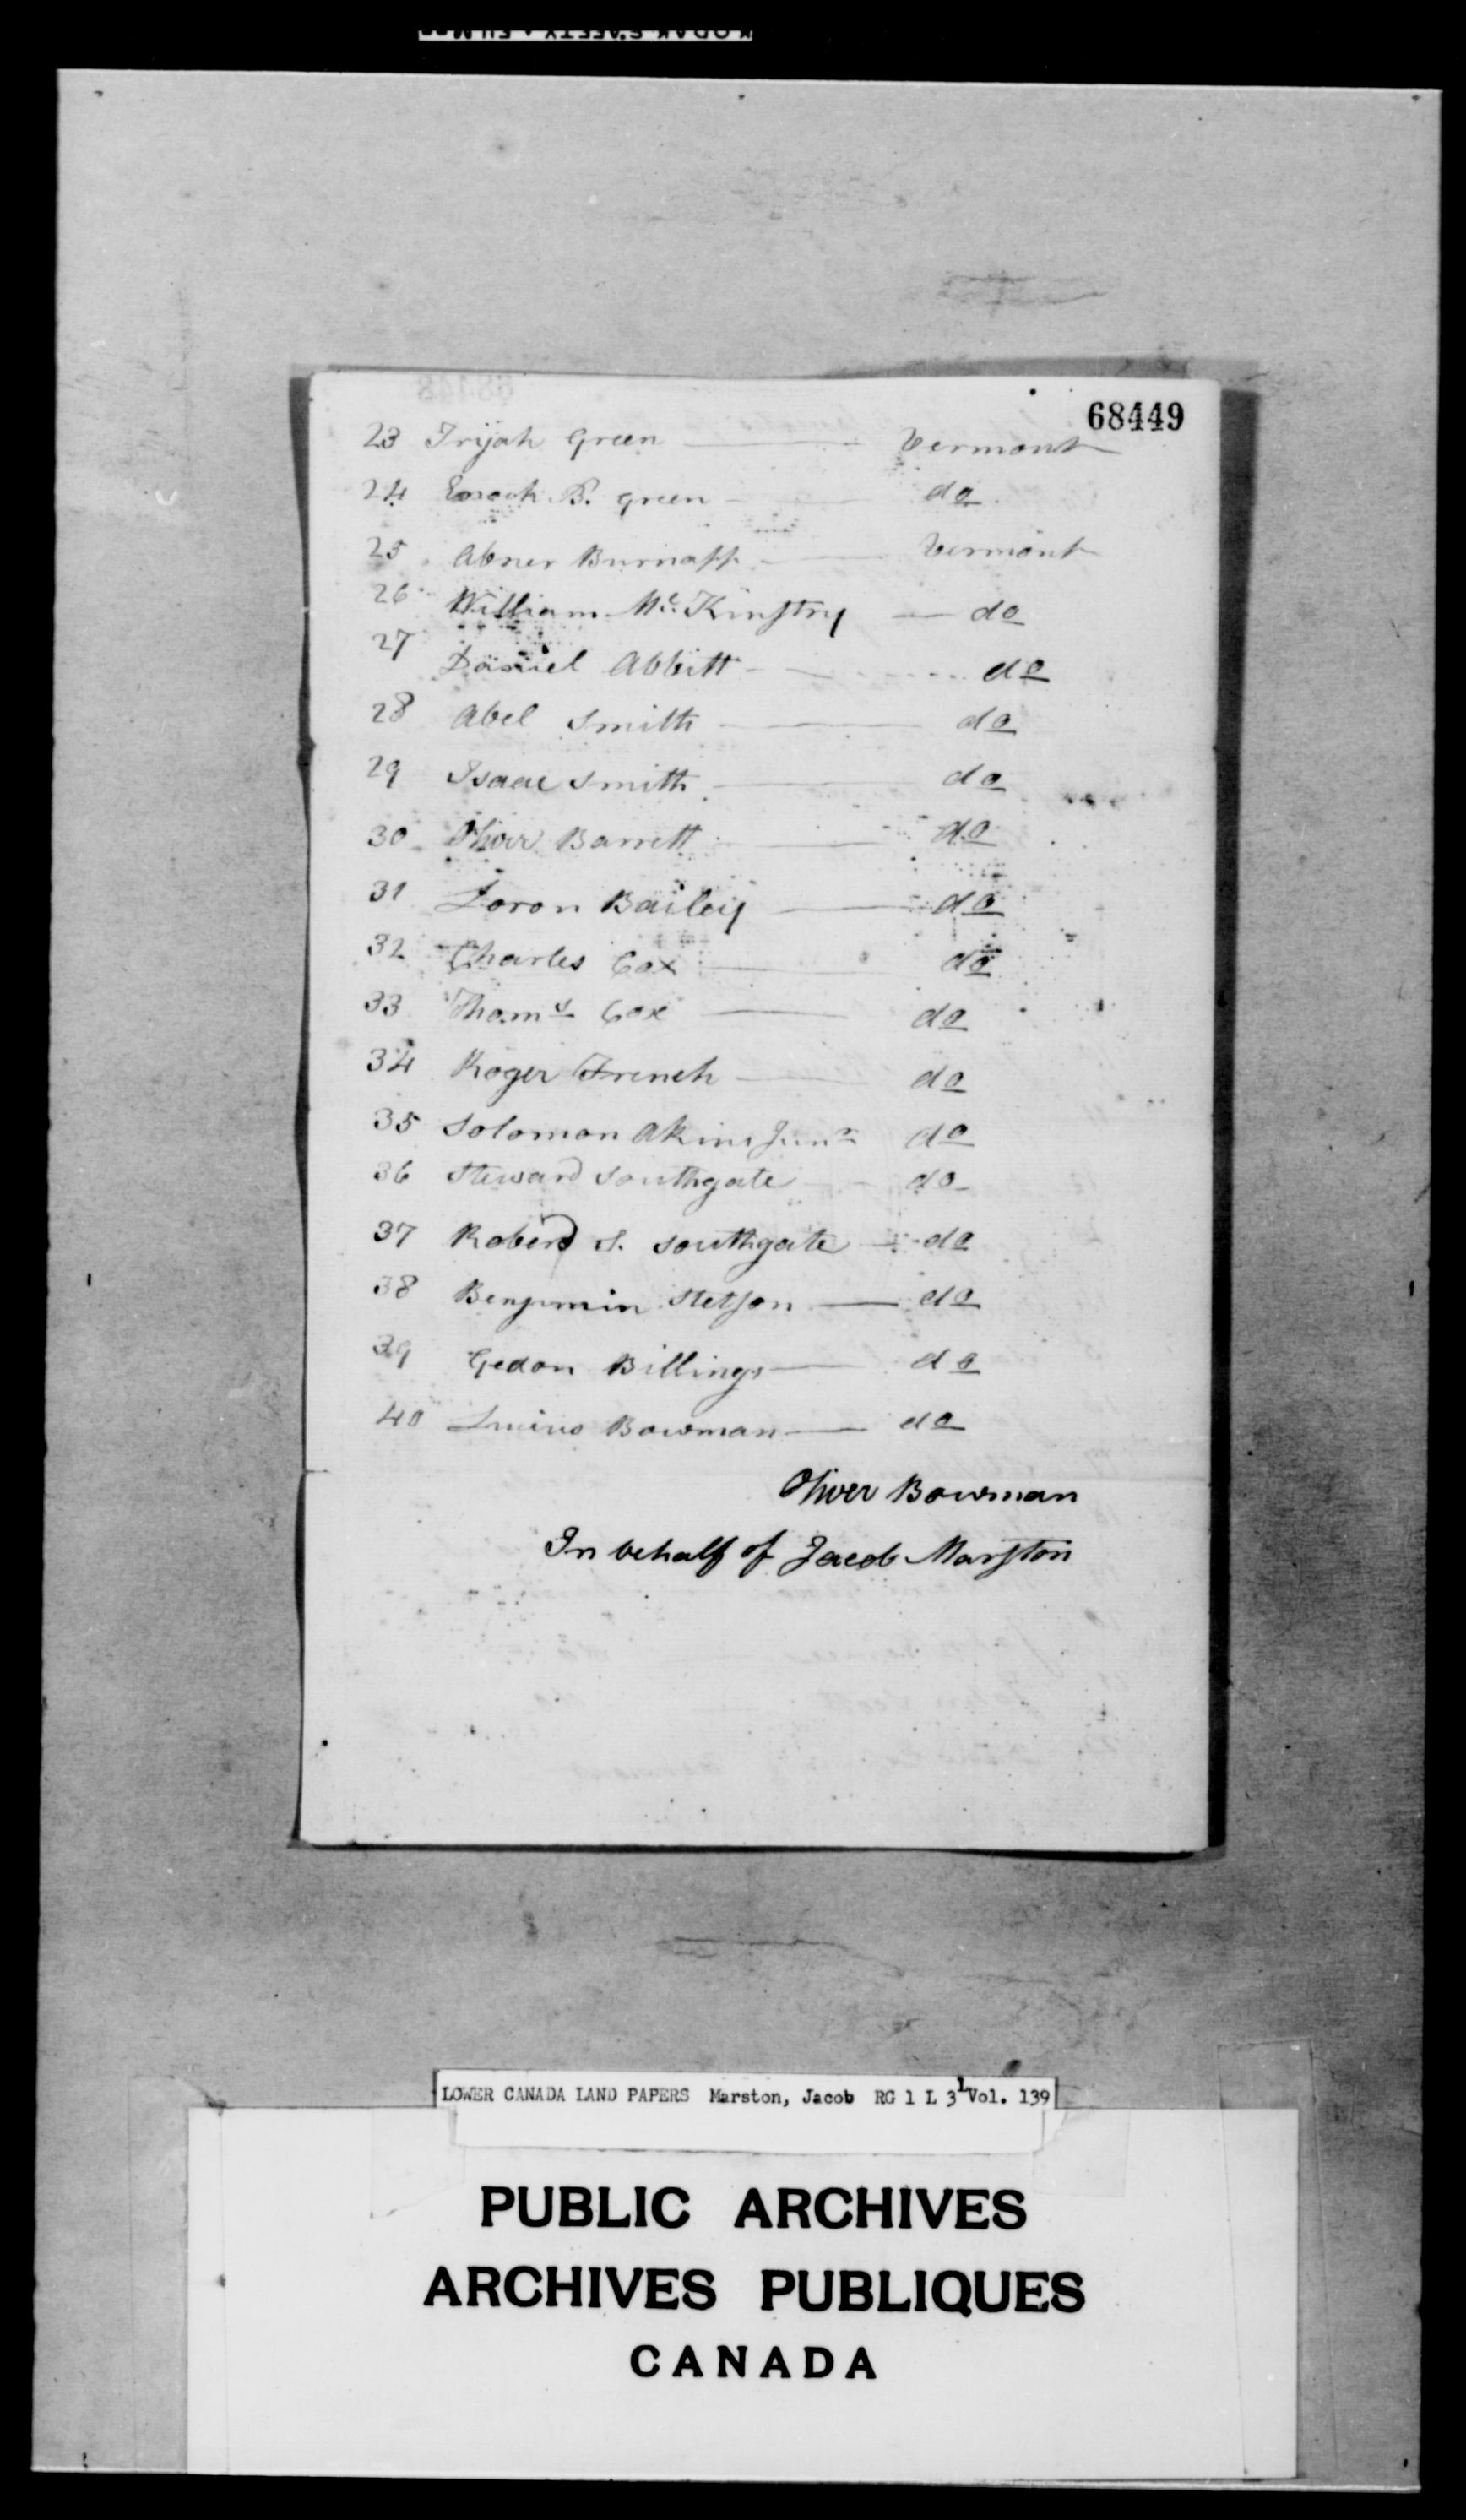 68449
23 Irijah Green — Vermont
24 Enoch B. Green — do
25 Abner Burnapp — Vermont
26 William Mc. Kinstry — do
27 Daniel Abbitt — do
28 Abel Smith — do
29 Isaac Smith — do
30 Oliver Barrett — do
31 Loron Bailey — do
32 Charles Cox — do
33 Thoms Cox — do
34 Roger French — do
35 Solomon Akins Junr do
36 Steward Southgate — do
37 Roberd S. Southgate — do
38 Benjamin Stetson — do
39 Gedon Billings — do
40 Lucius Bowman — do
Oliver Bowman
In behalf of Jacob Marston
LOWER CANADA LAND PAPERS Marston, Jacob RG 1 L 3L Vol. 139
PUBLIC ARCHIVES
ARCHIVES PUBLIQUES
CANADA